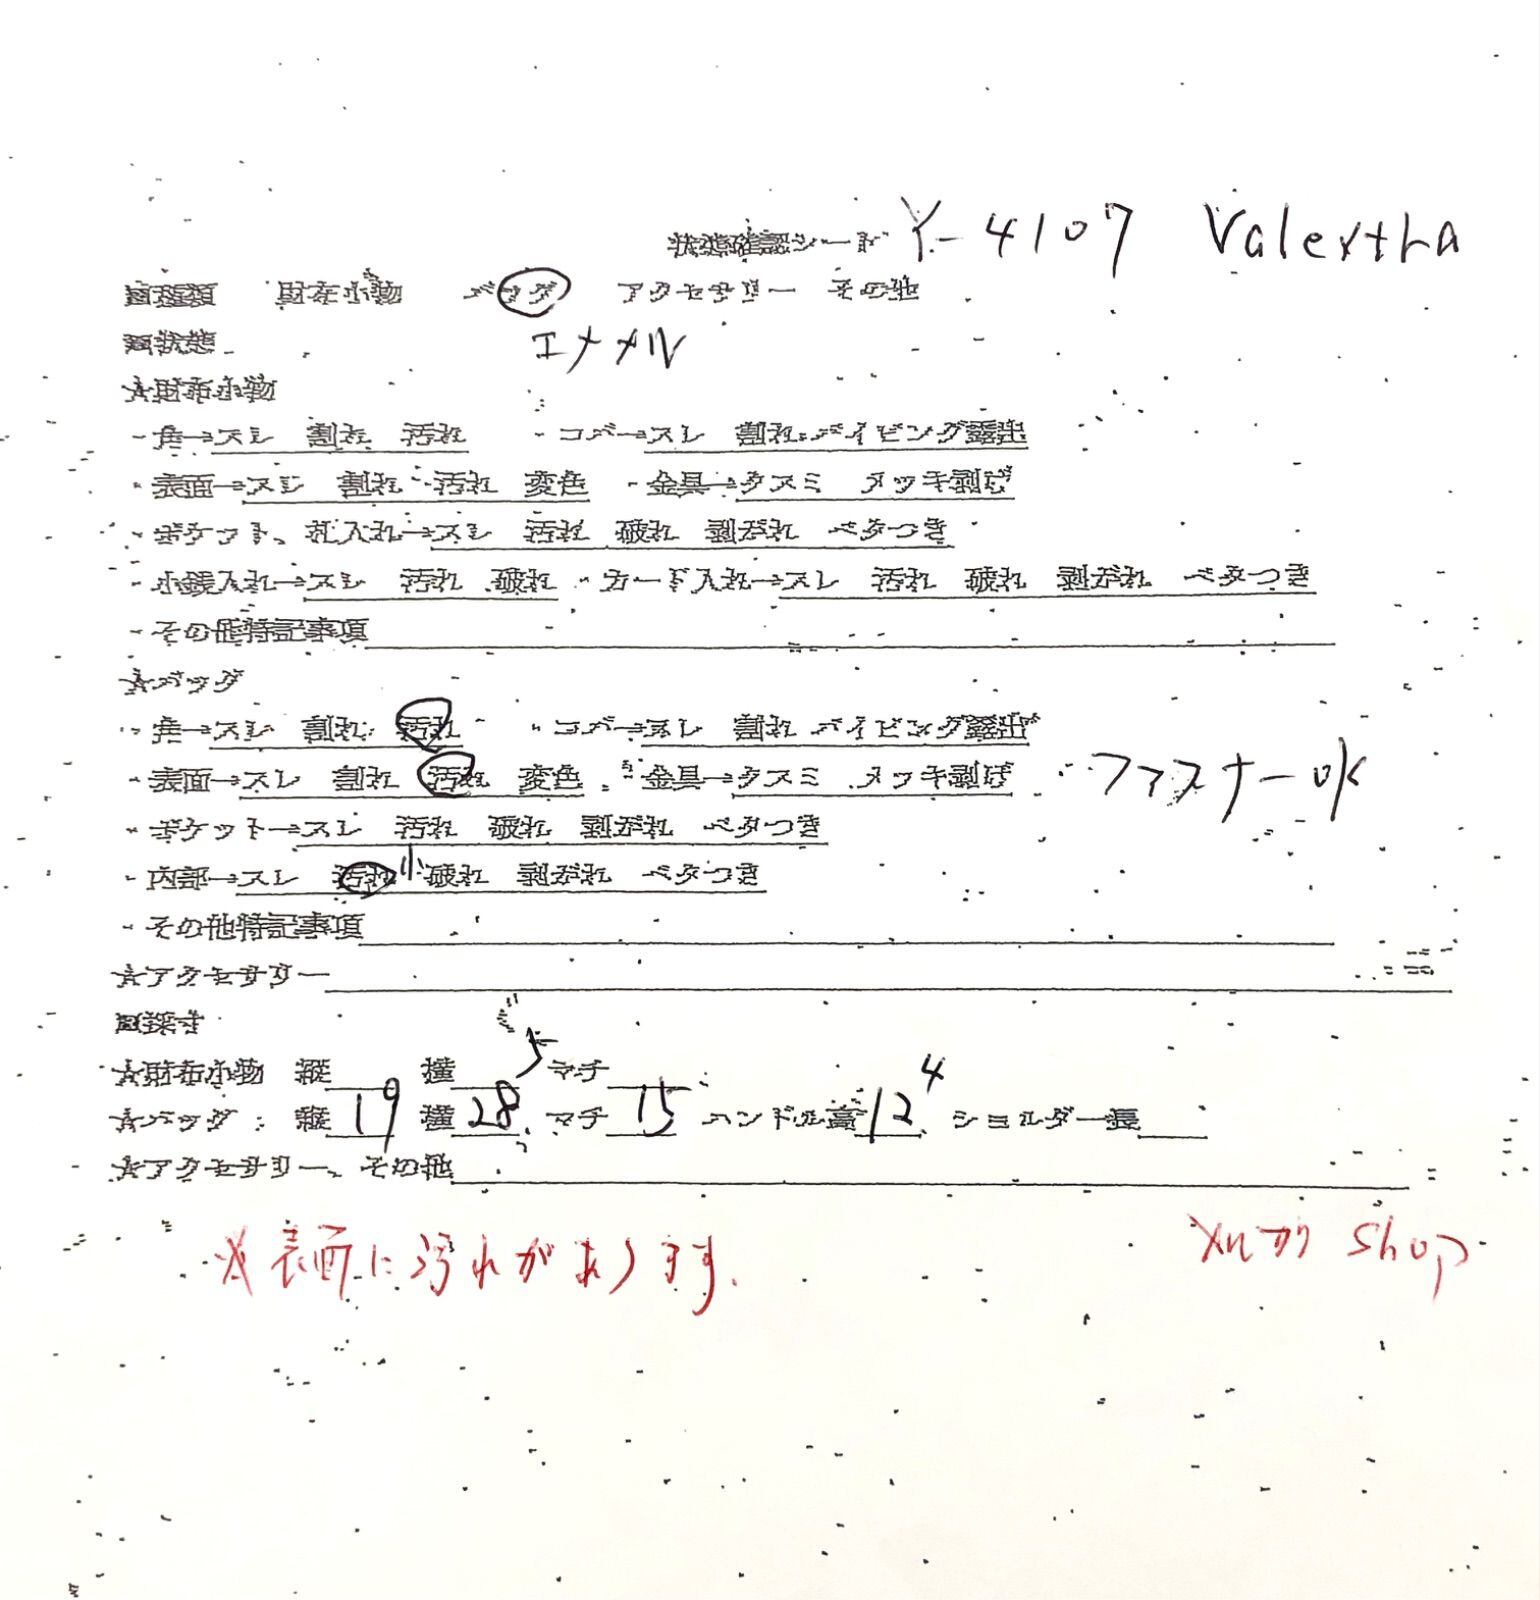 状態確認シート Y-4107 Valextra
□種類 財布小物 バッグ アクセサリー その他
□状態 エナメル
★財布小物
・角→スレ 割れ 汚れ ・コバ→スレ 割れ パイピング露出
・表面→スレ 割れ 汚れ 変色 ・金具→クスミ メッキ剥げ
・ポケット、札入れ→スレ 汚れ 破れ 剥がれ ベタつき
・小銭入れ→スレ 汚れ 破れ ・カード入れ→スレ 汚れ 破れ 剥がれ ベタつき
・その他特記事項
★バッグ
・角→スレ 割れ 汚れ ・コバ→スレ 割れ パイピング露出
・表面→スレ 割れ 汚れ 変色 ・金具→クスミ メッキ剥げ ファスナーOK
・ポケット→スレ 汚れ 破れ 剥がれ ベタつき
・内部→スレ 汚れ 小 破れ 剥がれ ベタつき
・その他特記事項
★アクセサリー
□採寸
★財布小物 縦 横 マチ
★バッグ:縦 19 横 28 マチ 15 ハンドル高 12 4 ショルダー長
★アクセサリー、その他
※表面に汚れがあります。
メルカリ Shop